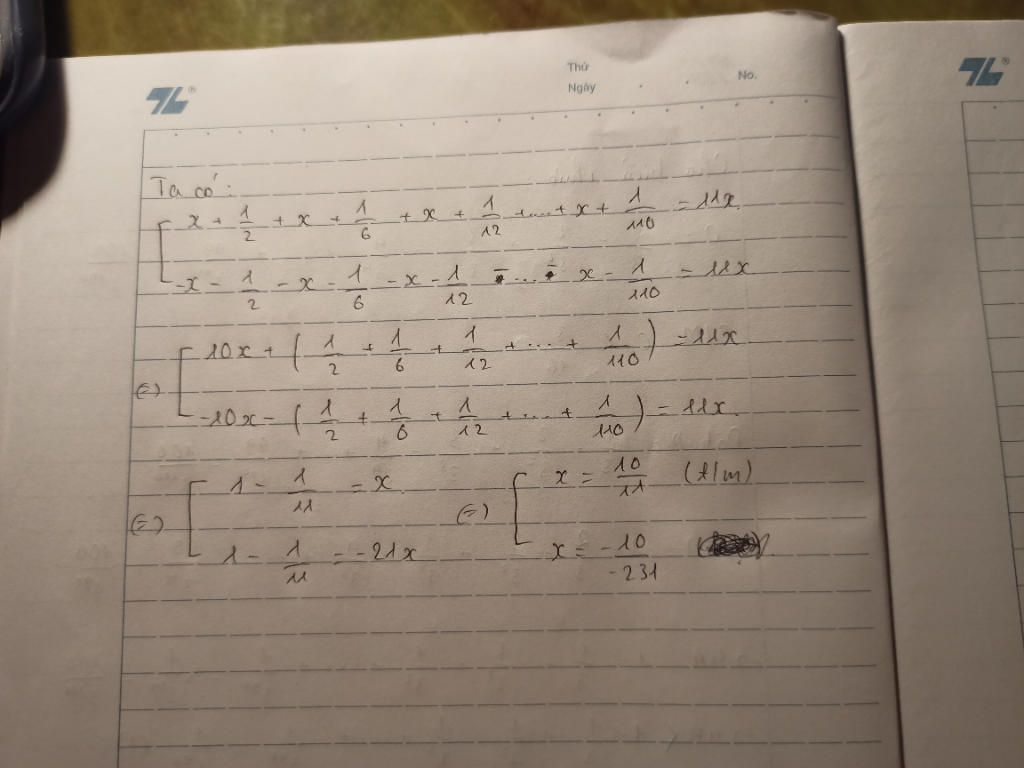 Thứ
Ngày No.
TL® TL®
Ta có:
x + 1/2 + x + 1/6 + x + 1/12 + ... + x + 1/110 = 11x
-x - 1/2 - x - 1/6 - x - 1/12 - ... - x - 1/110 = 11x
(=) 10x + (1/2 + 1/6 + 1/12 + ... + 1/110) = 11x
-10x - (1/2 + 1/6 + 1/12 + ... + 1/110) = 11x.
(=) 1 - 1/11 = x (=) x = 10/11 (t/m)
1 - 1/11 = -21x x = -10/-231